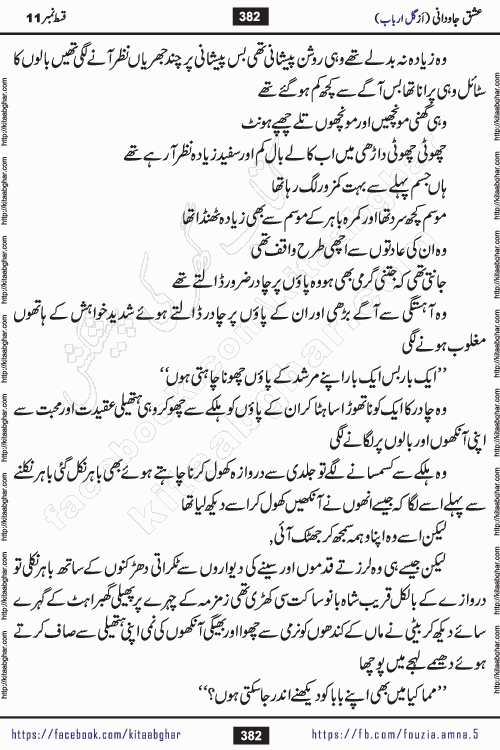 عشق جاودانی (از گل ارباب)
382
قسط نمبر 11
وہ زیادہ نہ بدلے تھے وہی روشن پیشانی تھی بس پیشانی پر چند جھریاں نظر آنے لگی تھیں بالوں کا
سٹائل وہی پرانا تھا بس آگے سے کچھ کم ہو گئے تھے
وہی گھنی مونچھیں اور مونچھوں تلے چھپے ہونٹ
چھوٹی چھوٹی داڑھی میں اب کالے بال کم اور سفید زیادہ نظر آ رہے تھے
ہاں جسم پہلے سے بہت کمزور لگ رہا تھا
موسم کچھ سرد تھا اور کمرہ باہر کے موسم سے بھی زیادہ ٹھنڈا تھا
وہ ان کی عادتوں سے اچھی طرح واقف تھی
جانتی تھی کہ جتنی گرمی بھی ہو وہ پاؤں پر چادر ضرور ڈالتے تھے
وہ آہستگی سے آگے بڑھی اور ان کے پاؤں پر چادر ڈالتے ہوئے شدید خواہش کے ہاتھوں
مغلوب ہونے لگی
”ایک بار بس ایک بار اپنے مرشد کے پاؤں چھونا چاہتی ہوں“
وہ چادر کا ایک کونا تھوڑا سا ہٹا کر ان کے پاؤں کو ہلکے سے چھو کر وہی ہتھیلی عقیدت اور محبت سے
اپنی آنکھوں اور بالوں پر لگانے لگی
وہ ہلکے سے کسمسانے لگے تو جلدی سے دروازہ کھول کرنا چاہتے ہوئے بھی باہر نکل گئی باہر نکلنے
سے پہلے اسے لگا کہ جیسے انھوں نے آنکھیں کھول کر اسے دیکھ لیا تھا
لیکن اسے وہ اپنا وہم سمجھ کر جھٹک آئی,
لیکن جیسے ہی وہ لرزتے قدموں اور سینے کی دیواروں سے ٹکراتی دھڑکنوں کے ساتھ باہر نکلی تو
دروازے کے بالکل قریب شاہ بانو ساکت سی کھڑی تھی زمزمہ کے چہرے پر پھیلی گھبراہٹ کے گہرے
سائے دیکھ کر بیٹی نے ماں کے کندھوں کو نرمی سے چھوا اور بھیگی آنکھوں کی نمی اپنی ہتھیلی سے صاف کرتے
ہوئے دھیمے لہجے میں پوچھا
”مما کیا میں بھی اپنے بابا کو دیکھنے اندر جا سکتی ہوں؟“
http://kitaabghar.com
https://facebook.com/kitaabghar
382
https://fb.com/fouzia.amna.5